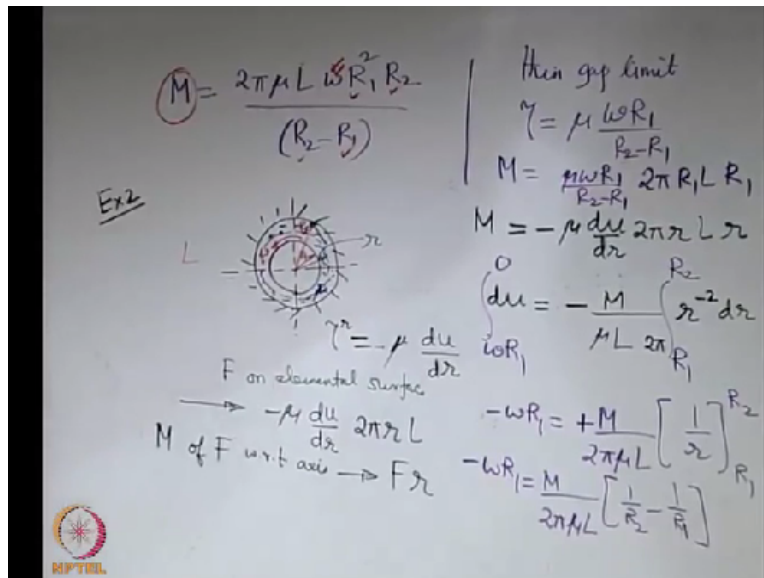 M = 2πμL ωR₁²R₂ / (R₂ - R₁)
Ex2
L
r
τ = -μ du/dr
F on elemental surface
→ -μ du/dr 2πrL
M of F w.r.t axis → Fr
thin gap limit
τ = μ ωR₁/(R₂-R₁)
M = μωR₁/(R₂-R₁) 2πR₁L R₁
M = -μ du/dr 2πrL r
∫_{ωR₁}^{0} du = - M/(μL 2π) ∫_{R₁}^{R₂} r⁻² dr
-ωR₁ = +M/(2πμL) [1/r]_{R₁}^{R₂}
-ωR₁ = M/(2πμL) [1/R₂ - 1/R₁]
NPTEL